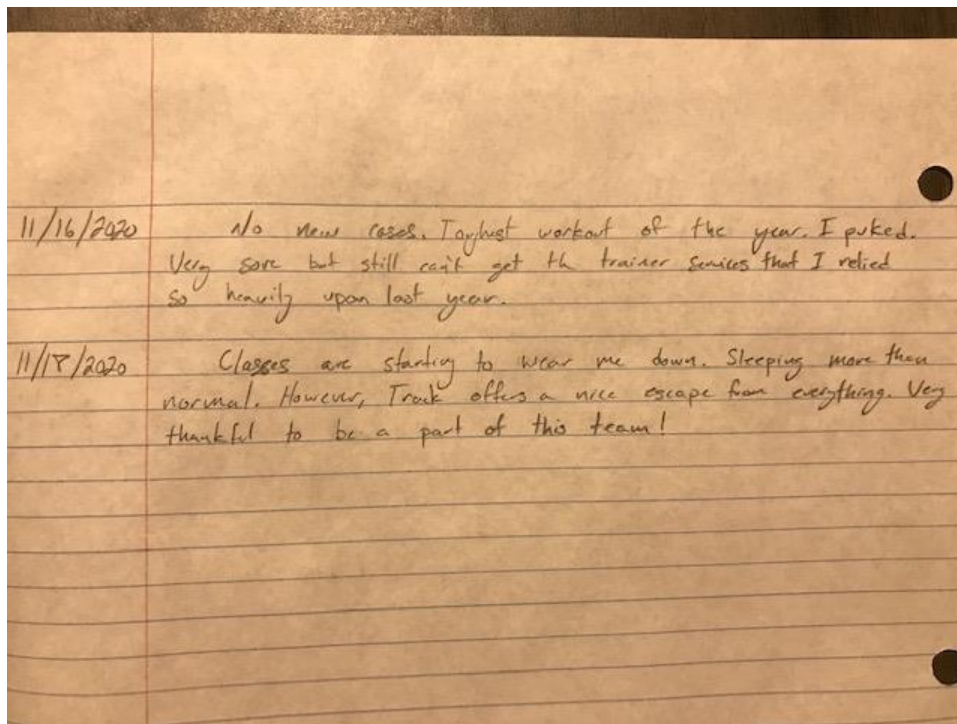 11/16/2020 No new cases. Toughest workout of the year. I puked.
Very sore but still can't get th trainer services that I relied
so heavily upon last year.
11/18/2020 Classes are starting to wear me down. Sleeping more than
normal. However, Track offers a nice escape from everything. Very
thankful to be a part of this team!